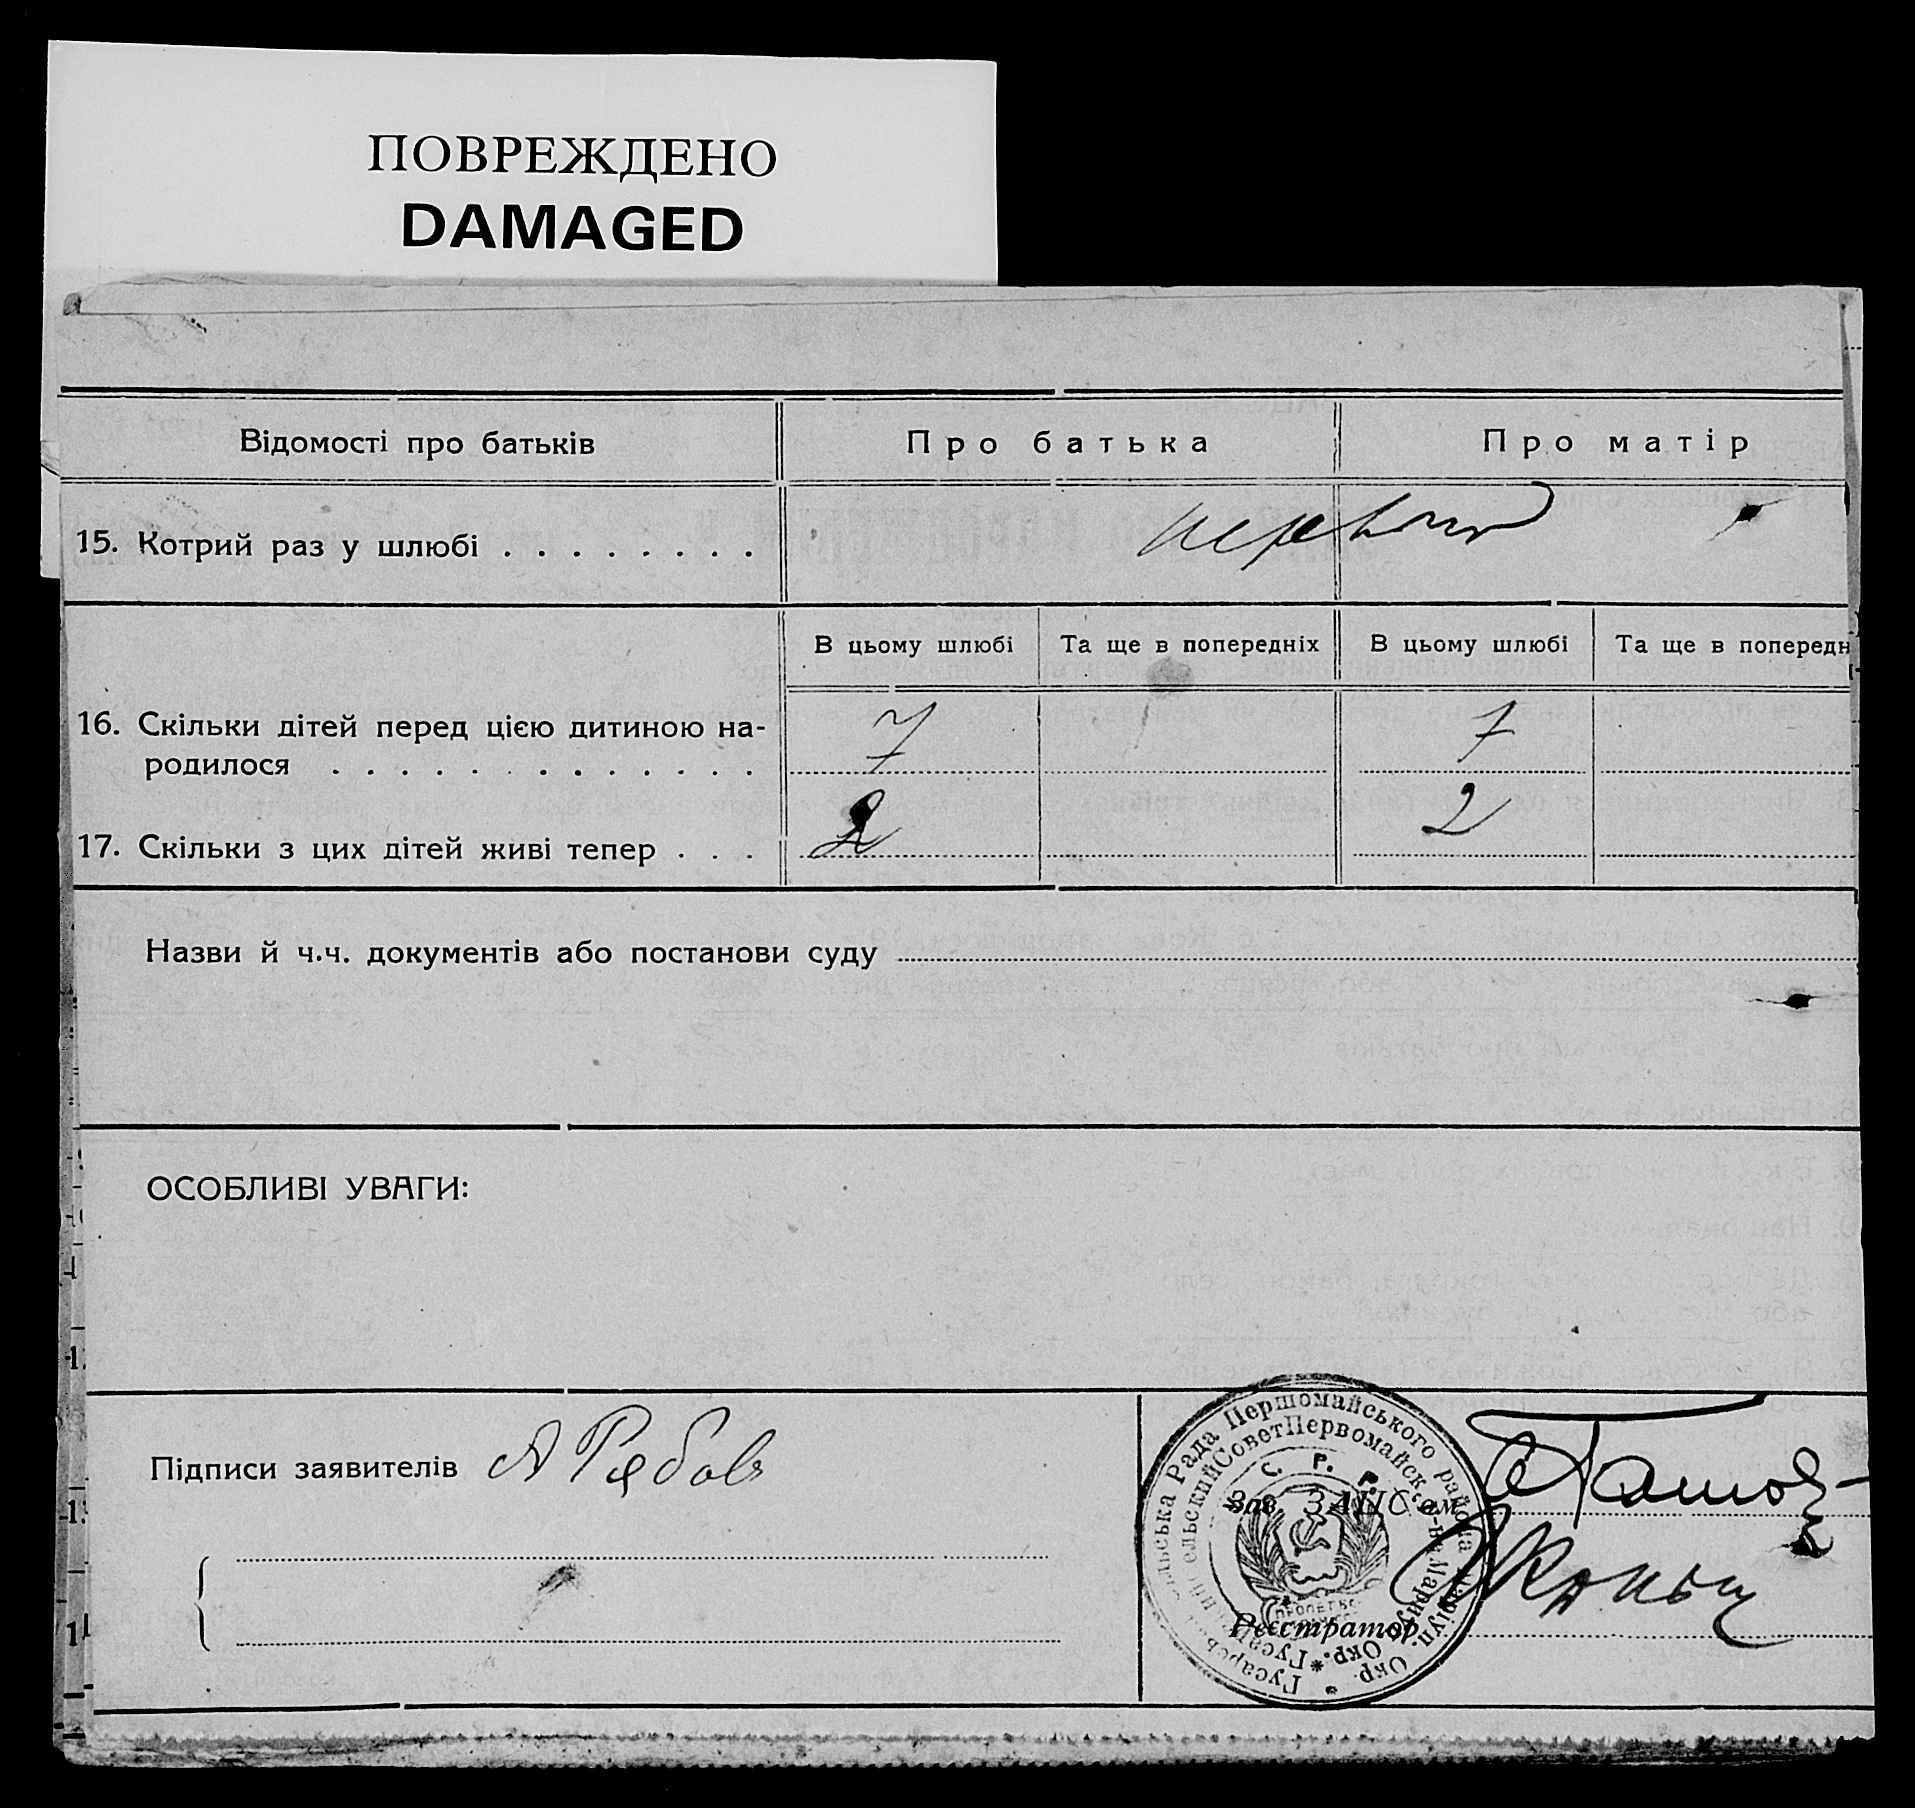 ПОВРЕЖДЕНО
DAMAGED
Відомості про батьків
Про батька
Про матір
15. Котрий раз у шлюбі . . . . . . . .
первый
В цьому шлюбі
Та ще в попередніх
В цьому шлюбі
Та ще в попередн
16. Скільки дітей перед цією дитиною на-
родилося . . . . . . . . . . . . .
7
7
17. Скільки з цих дітей живі тепер . . .
2
2
Назви й ч.ч. документів або постанови суду
ОСОБЛИВІ УВАГИ:
Підписи заявителів А Рябов
Зав. ЗАГС'ом
Реєстратор
Рада Першомайського района Маріуп. Окр. *
Совет Первомайск. р-на Мариуп. Окр. *
С. Р. Р.